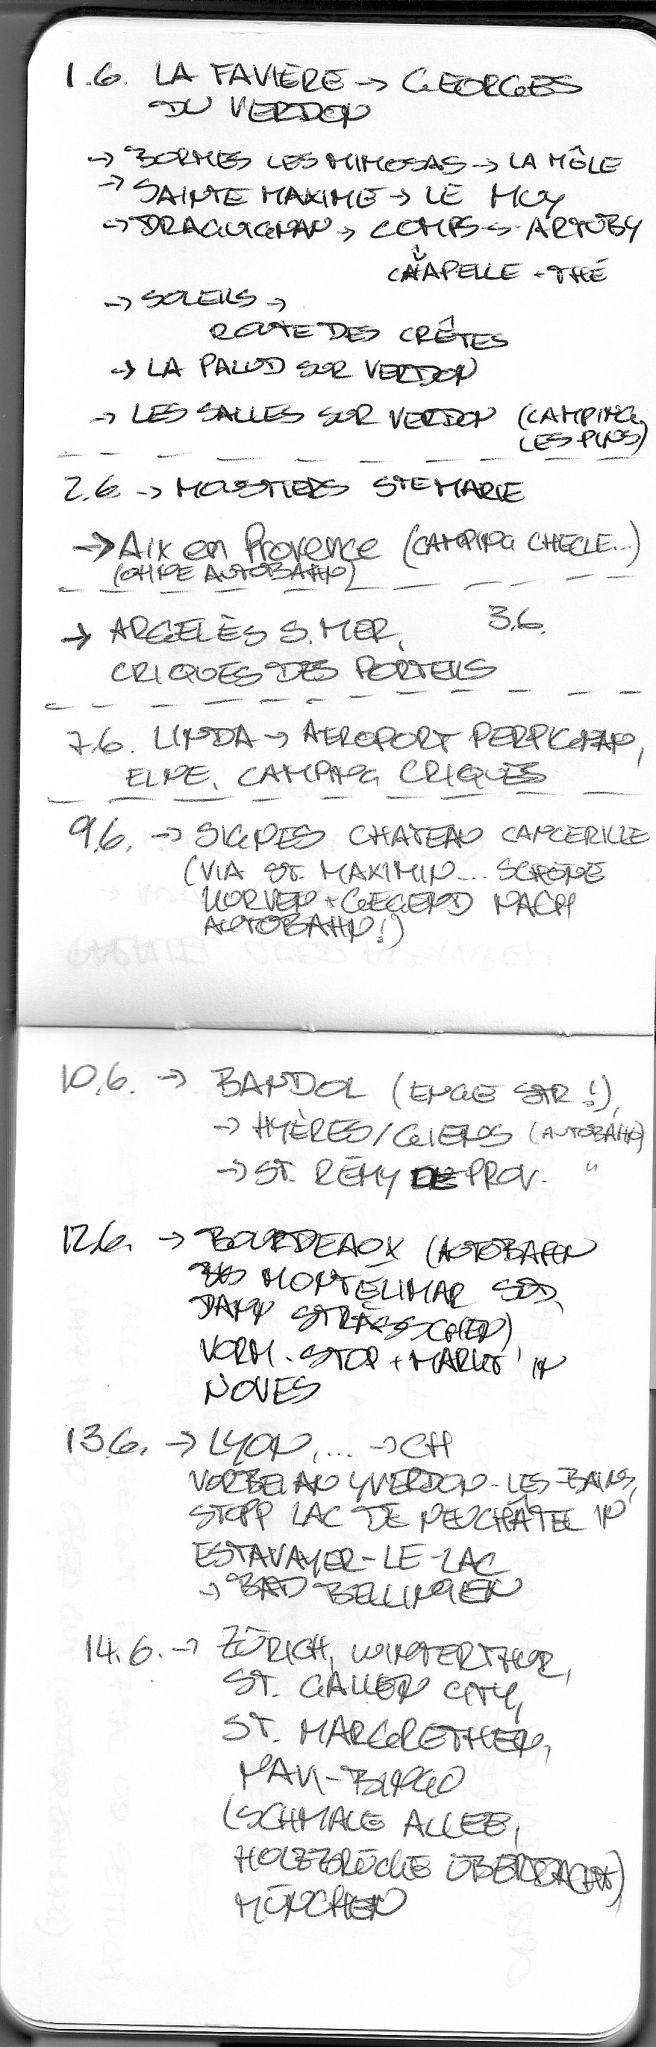 1.6. LA FAVIÈRE → GEORGES
DU VERDON
→ BORMES LES MIMOSAS → LA MÔLE
→ SAINTE MAXIME → LE MUY
→ DRAGUIGNAN → COMPS → ARTUBY
CHAPELLE - THÉ
→ SOLEILS →
ROUTE DES CRÊTES
→ LA PALUD SUR VERDON
→ LES SALLES SUR VERDON (CAMPING
LES PINS)
2.6 → MOUSTIERS STE MARIE
→ Aix en Provence (CAMPING CHECLE...)
(OHNE AUTOBAHN)
→ ARGELÈS S. MER, 3.6.
CRIQUES DES PORTEILS
7.6. LINDA → AEROPORT PERPIGNAN,
ELNE, CAMPING CRIQUES
9.6. → SIGNES CHATEAU CANCERILLE
(VIA ST. MAXIMIN... SCHÖNE
KURVEN + GEGEND NACH
AUTOBAHN!)
10.6. → BANDOL (ENGE STR.!),
→ HYÈRES/GIENS (AUTOBAHN)
→ ST. RÉMY DE PROV. "
12.6. → BOURDEAUX (AUTOBAHN
BIS MONTÉLIMAR SÜD,
DANN STRÄSSCHEN)
VORM. STOP + MARKT IN
NOVES
13.6. → LYON, ... → CH
VORBEI AN YVERDON-LES-BAINS,
STOPP LAC DE NEUCHÂTEL IN
ESTAVAYER-LE-LAC
→ BAD BELLINGEN
14.6. → ZÜRICH, WINTERTHUR,
ST. GALLEN CITY,
ST. MARGRETHEN,
(SCHMALE ALLEE,
HOLZBRÜCKE ÜBERDACHT)
MÜNCHEN